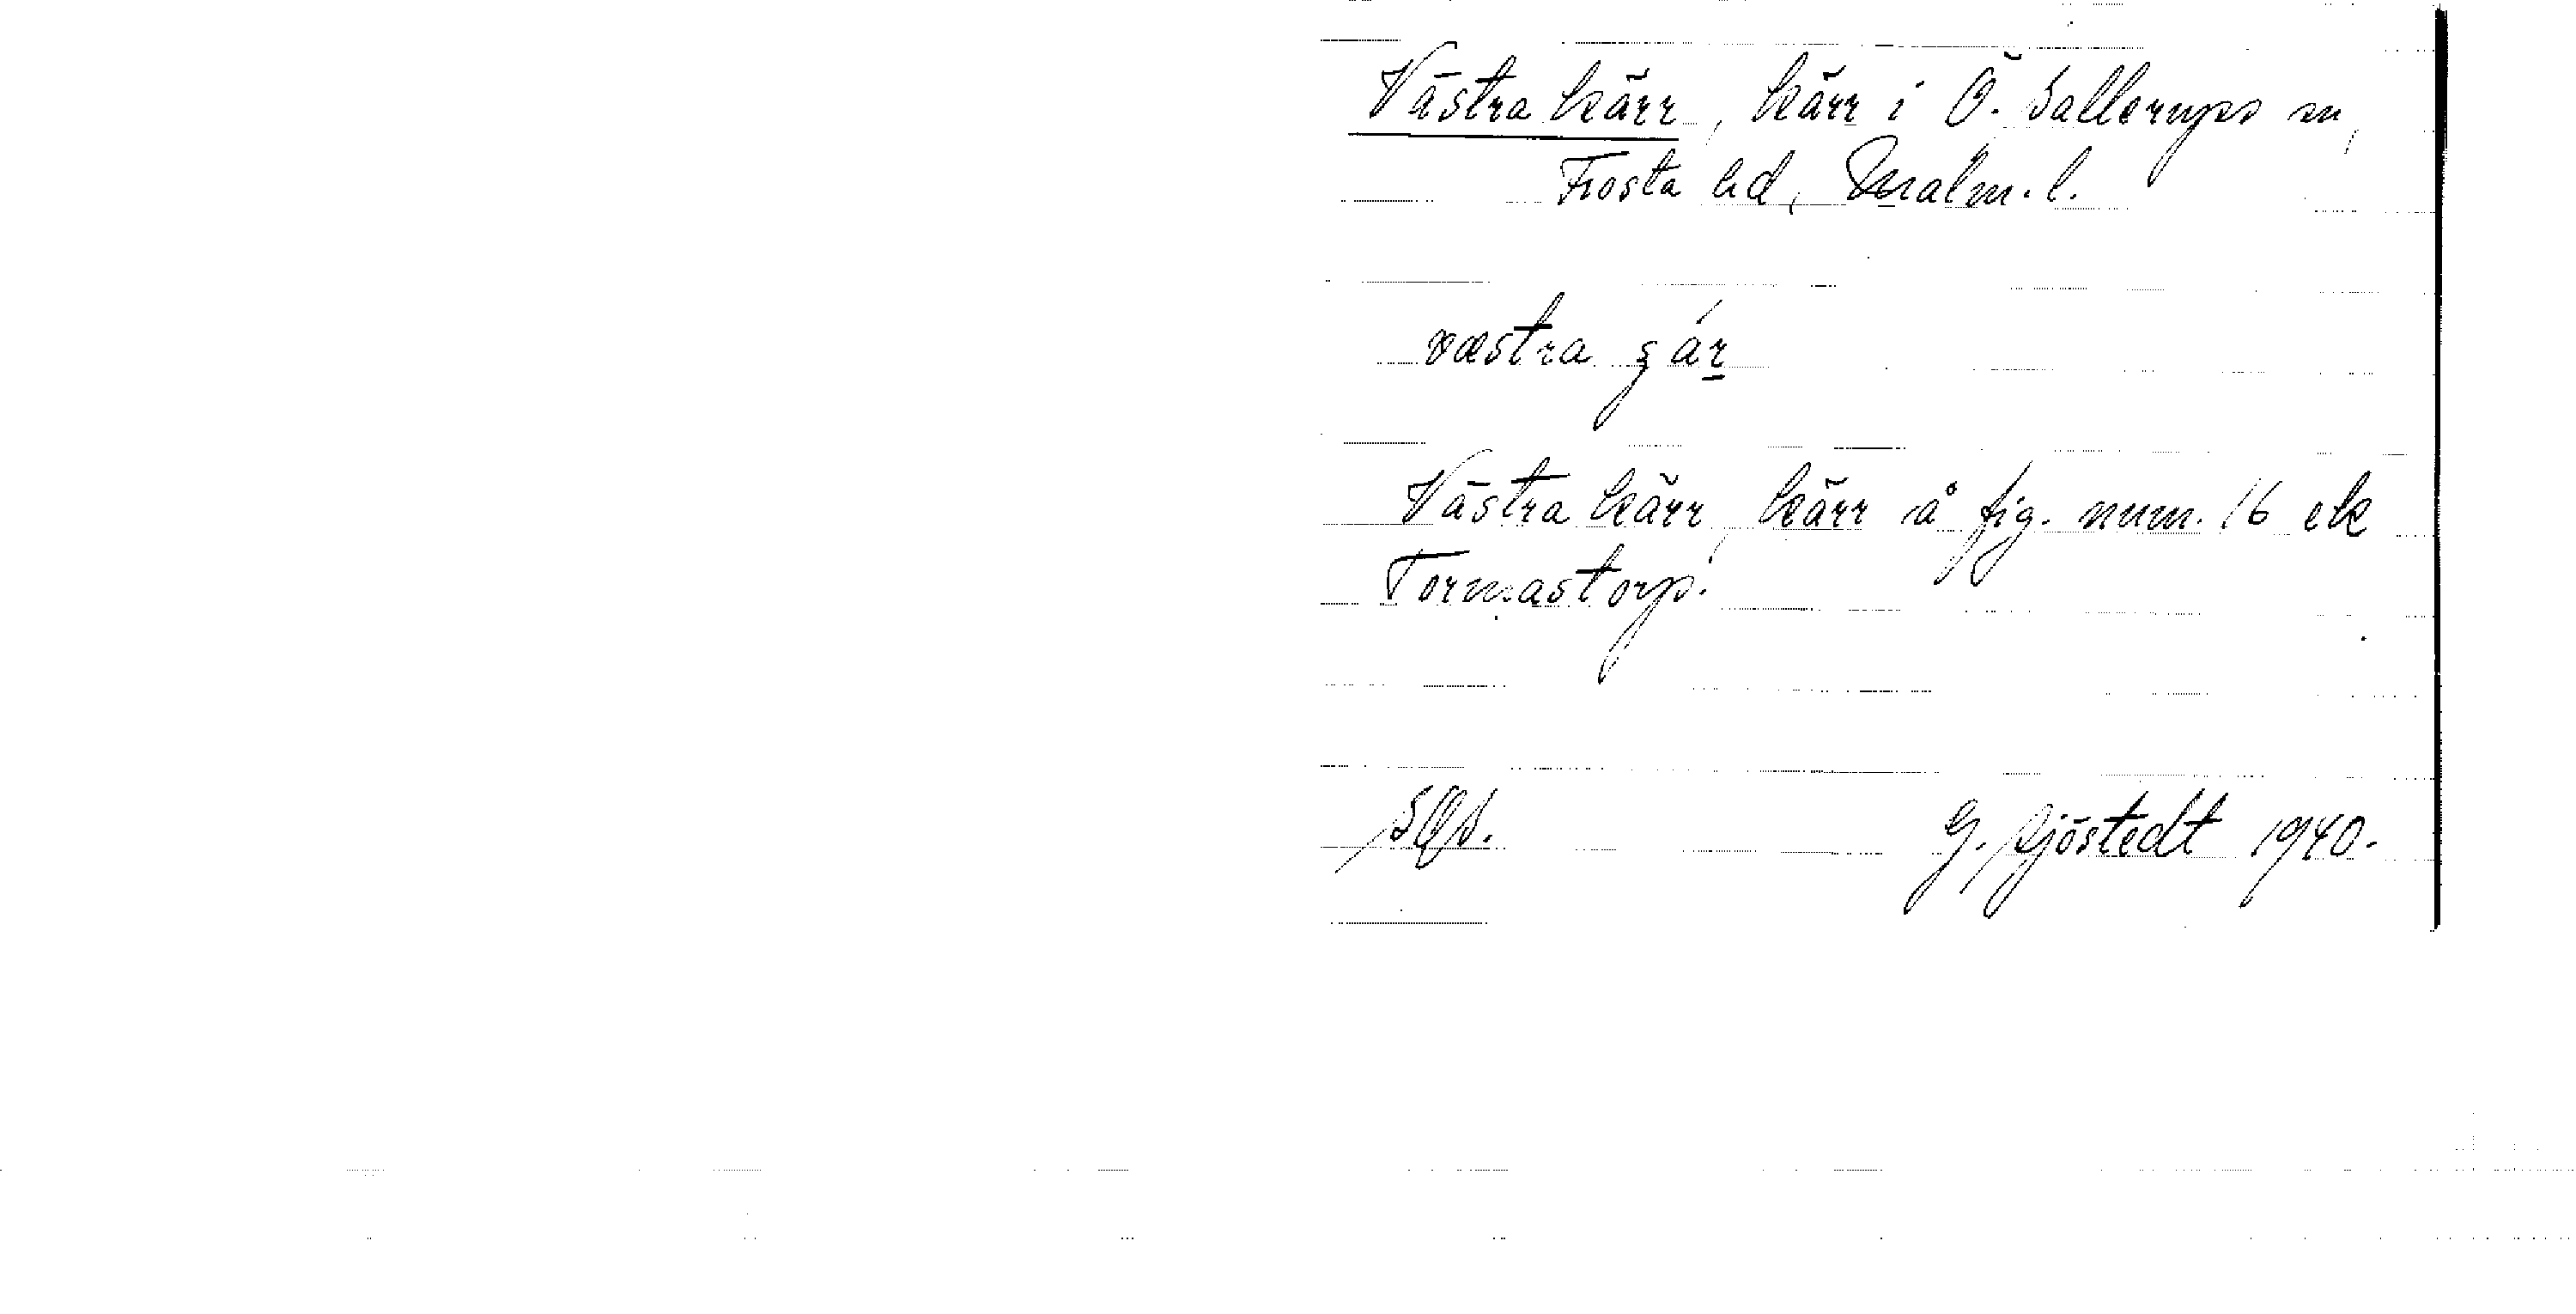 Västra kärr, kärr i Ö. Sallerups sn,
Frosta hd, Malm. l.
västra
Västra kärr, kärr å fig. num. 16 ek
Tormastorp.
G. Sjöstedt 1940.